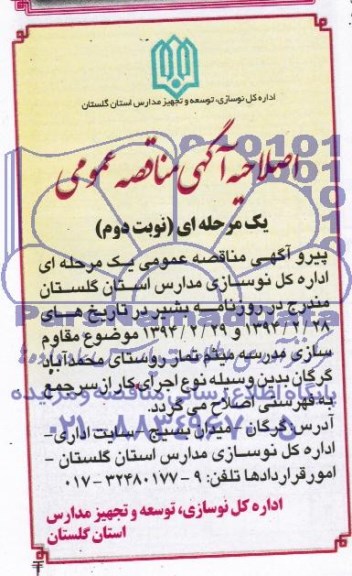 اداره کل نوسازی، توسعه و تجهیز مدارس استان گلستان
اصلاحیه آگهی مناقصه عمومی
یک مرحله ای (نوبت دوم)
پیرو آگهی مناقصه عمومی یک مرحله ای
اداره کل نوسازی مدارس استان گلستان
مندرج در روزنامه بشیر در تاریخ های
۱۳۹۴/۲/۲۸ و ۱۳۹۴/۲/۲۹ موضوع مقاوم
سازی مدرسه میثم تمار روستای محمدآباد
گرگان بدین وسیله نوع اجرای کار از سرجمع
به فهرستی اصلاح می گردد.
آدرس: گرگان - میدان بسیج - سایت اداری -
اداره کل نوسازی مدارس استان گلستان -
امور قراردادها تلفن: ۹ - ۳۲۴۸۰۱۷۷ - ۰۱۷
اداره کل نوسازی، توسعه و تجهیز مدارس
استان گلستان
ParsNamadData
پایگاه اطلاع رسانی مناقصه و مزایده
۰۲۱-۸۸۳۴۹۶۷۰-۵